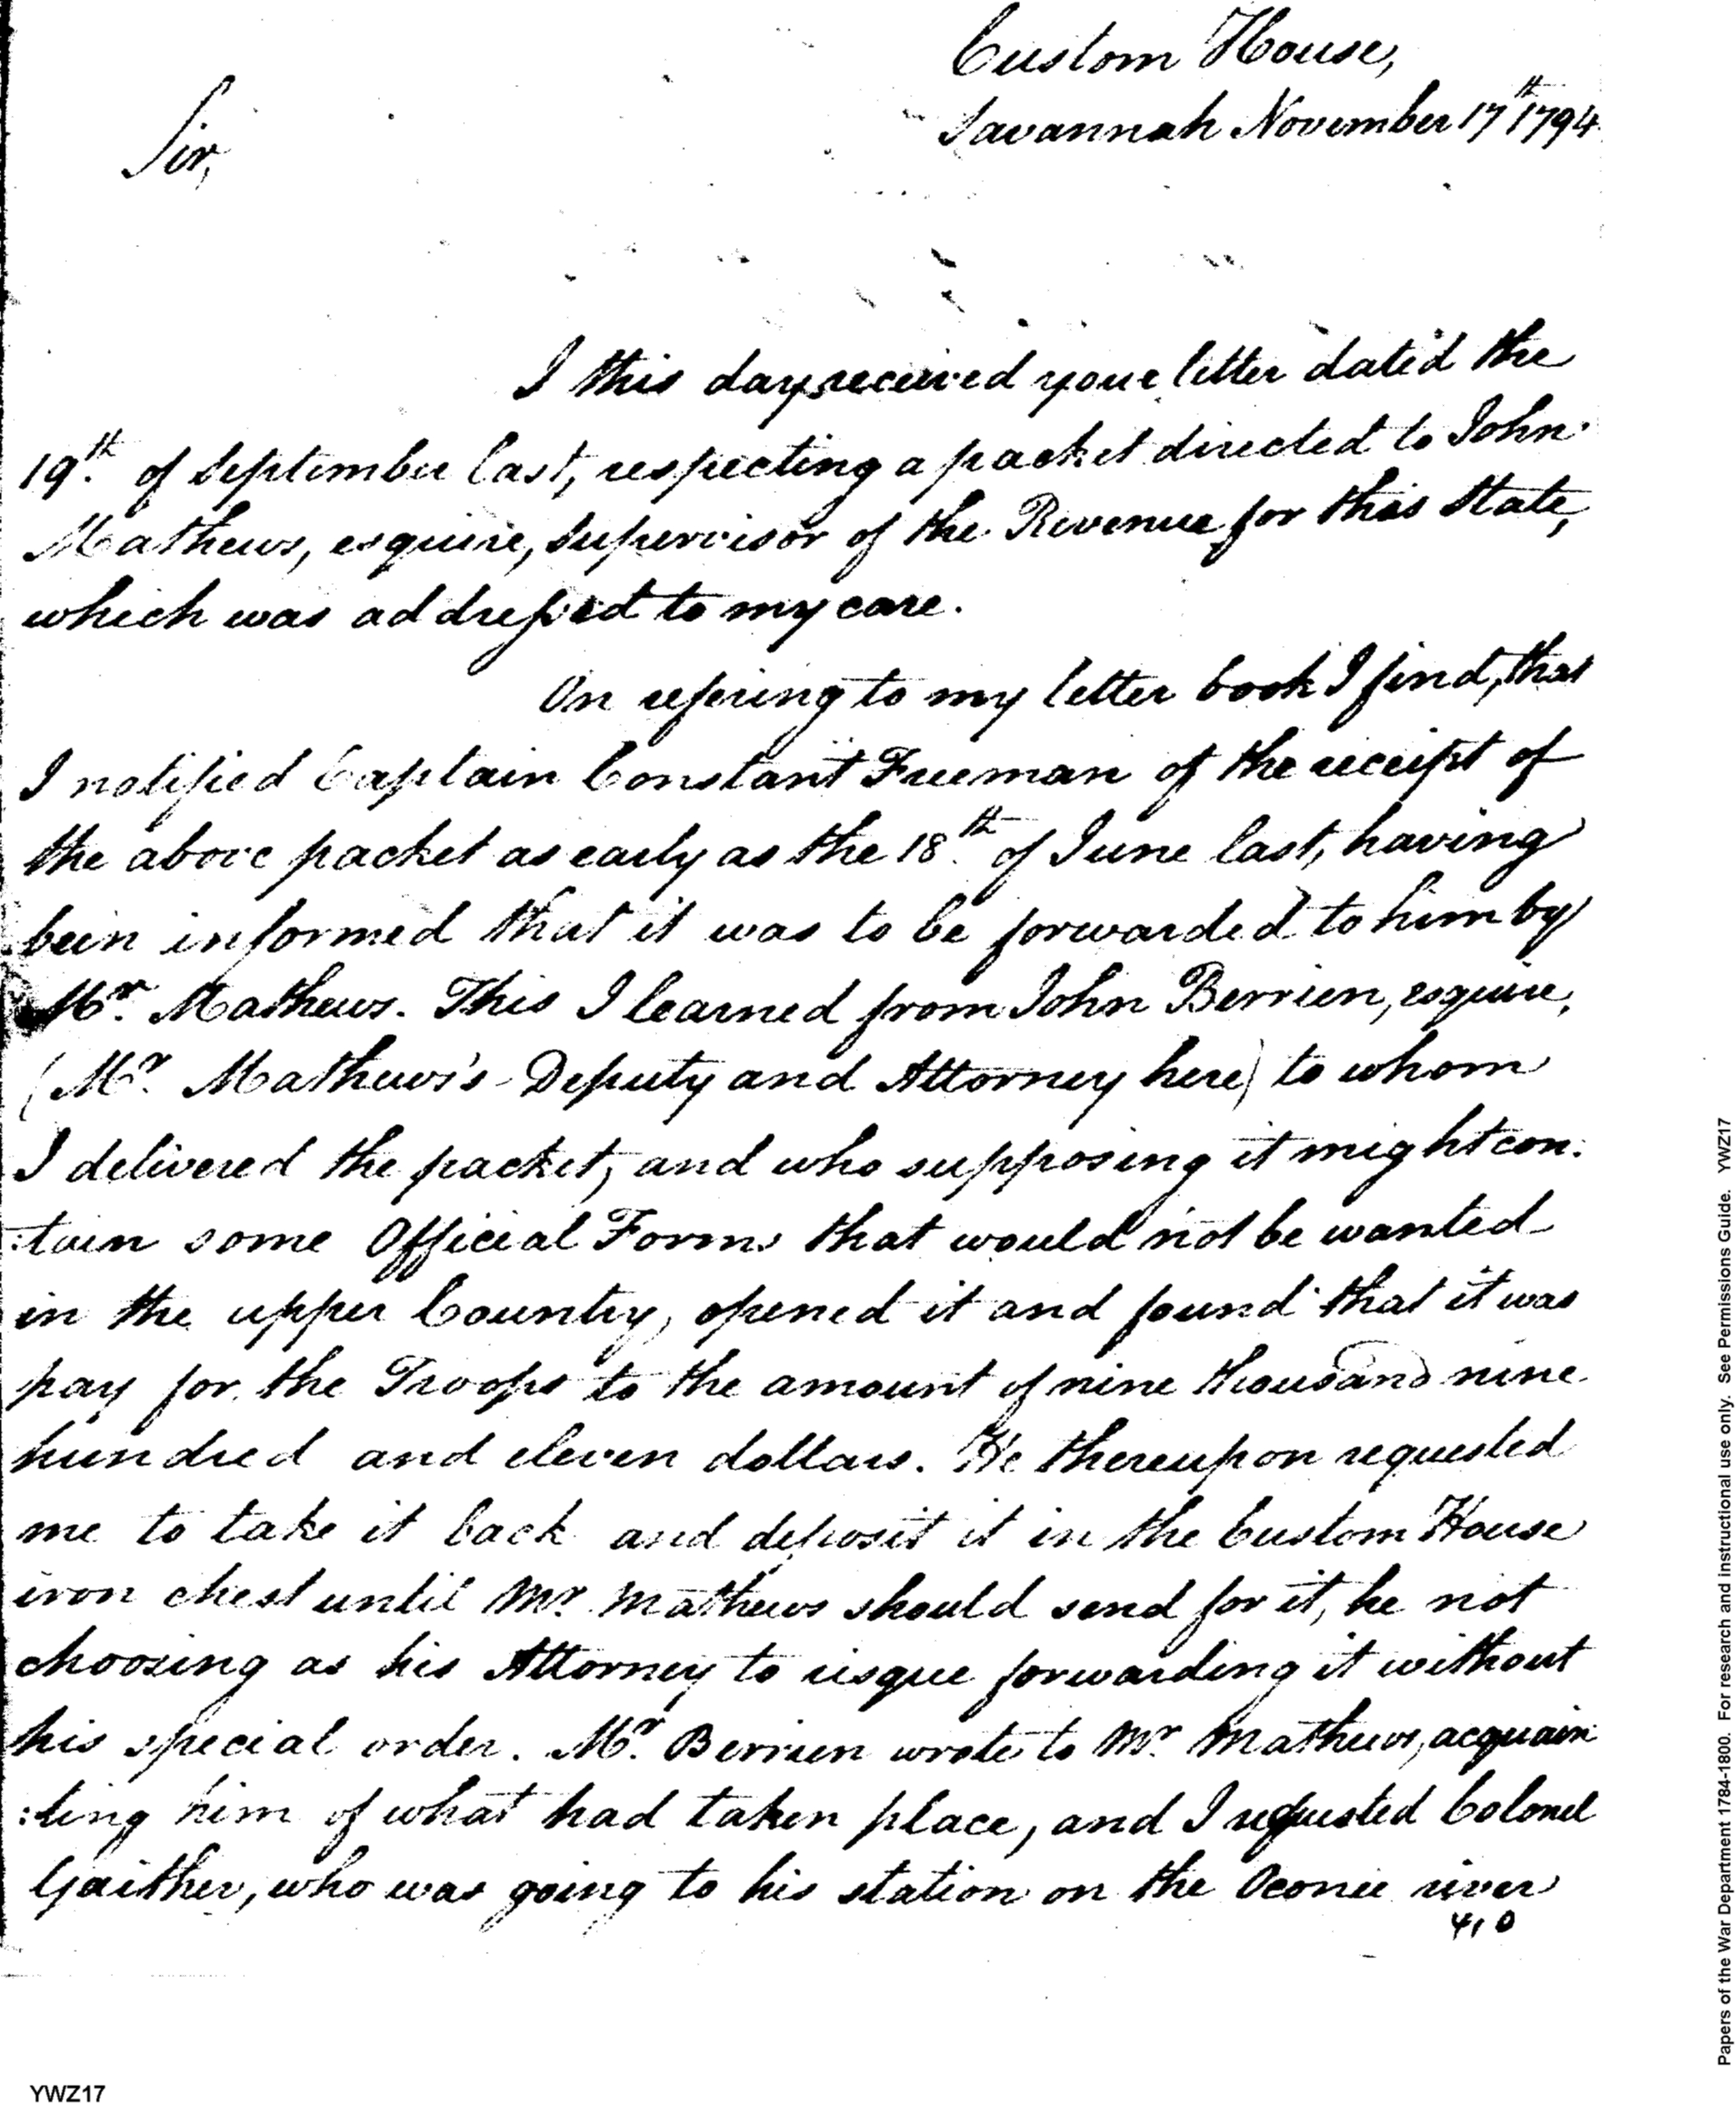 Custom House,
Savannah November 17th 1794
Sir,
I this day received your letter dated the
19th. of September last, respecting a packet directed to John
Mathews, esquire, Supervisor of the Revenue for this State,
which was addressed to my care.
On refering to my letter book I find, that
I notified Captain Constant Freeman of the receipt of
the above packet as early as the 18th. of June last, having
been informed that it was to be forwarded to him by
Mr. Mathews. This I learned from John Berrien, esquire,
(Mr. Mathews's Deputy and Attorney here) to whom
I delivered the packet, and who supposing it might con:
:tain some Official Forms that would not be wanted
in the upper Country, opened it and found that it was
pay for the Troops to the amount of nine thousand nine
hundred and eleven dollars. He thereupon requested
me to take it back and deposit it in the Custom House
iron chest until Mr. Mathews should send for it, he not
choosing as his Attorney to risque forwarding it without
his special order. Mr. Berrien wrote to Mr. Mathews, acquain
:ting him of what had taken place, and I requested Colonel
Gaither, who was going to his station on the Oconee river
410
YWZ17
Papers of the War Department 1784-1800. For research and instructional use only. See Permissions Guide. YWZ17